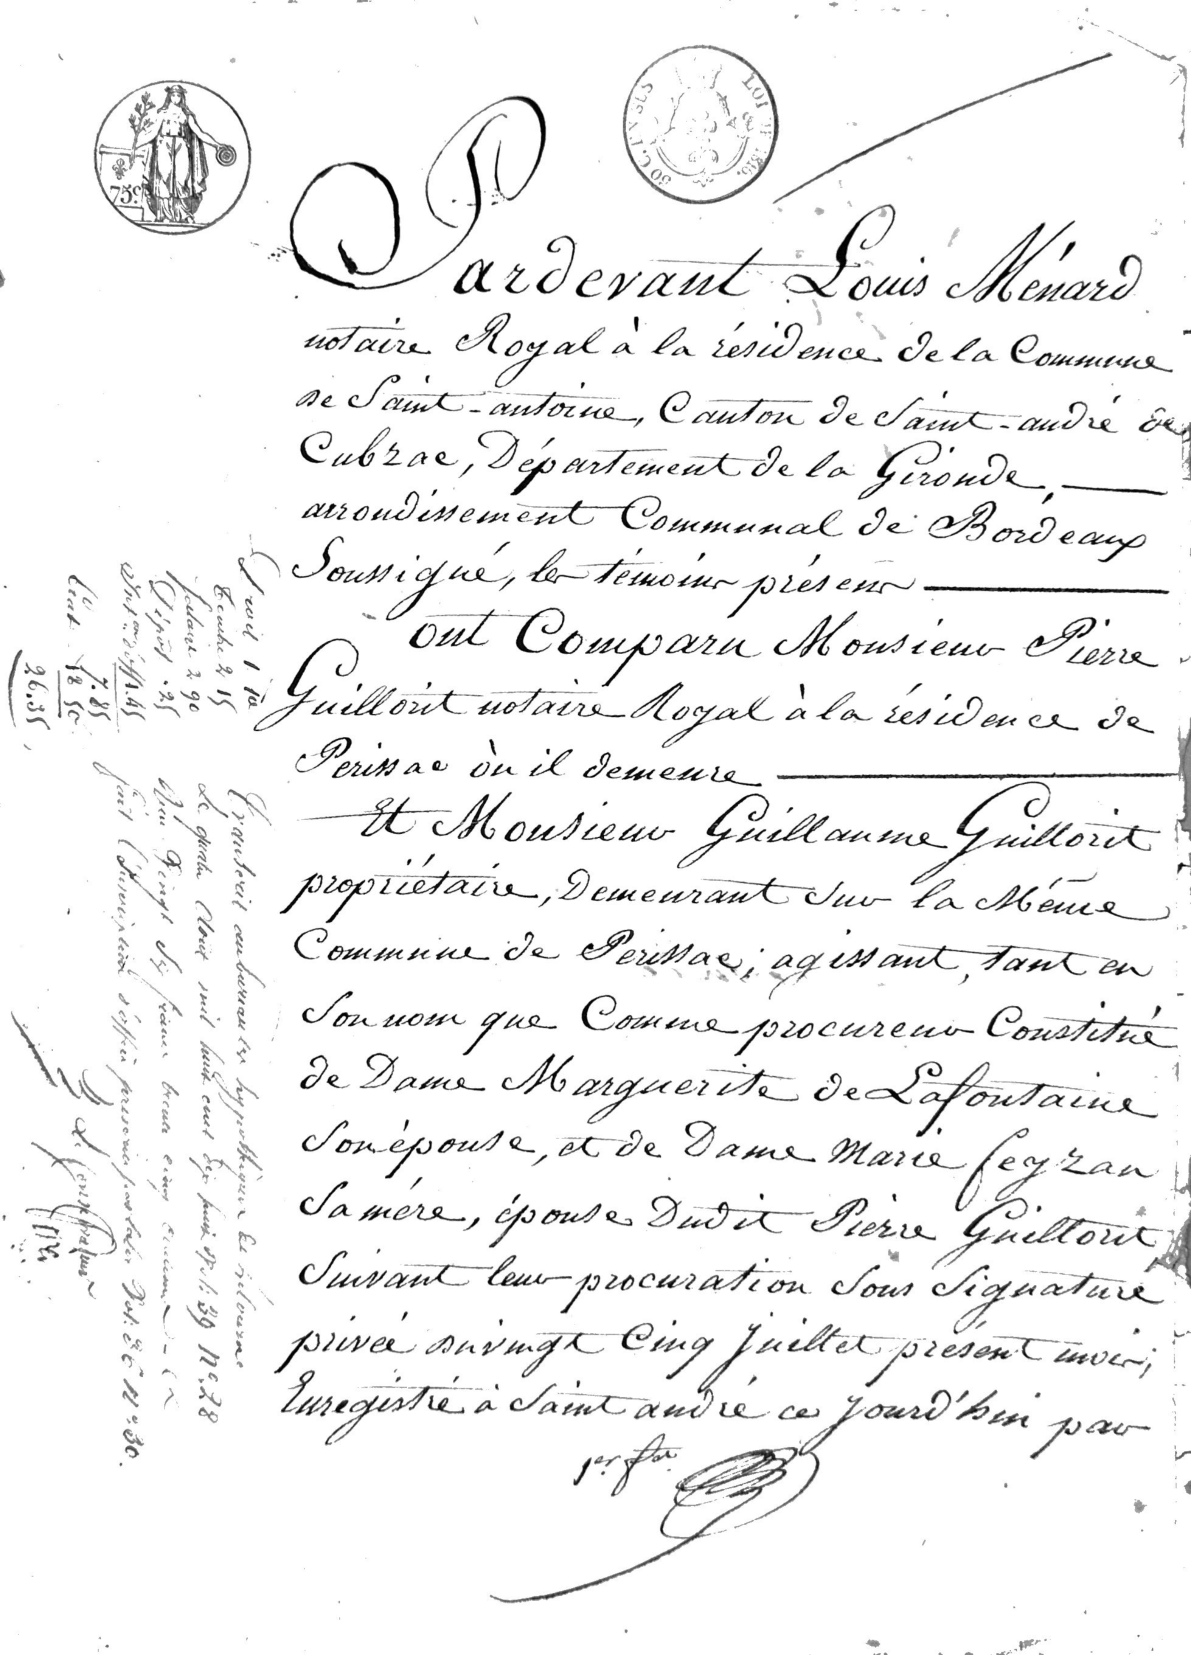 75c.
50 C. EN SUS
LOI DE 1816.
Pardevant Louis Ménard
notaire Royal à la résidence de la Commune
de Saint-antoine, Canton de Saint-andré de
Cubzac, Département de la Gironde,
arrondissement Communal de Bordeaux
Soussigné, les témoins présens
ont Comparu Monsieur Pierre
Guillorit notaire Royal à la résidence de
Perissac où il demeure
Et Monsieur Guillaume Guillorit
propriétaire, Demeurant Sur la Même
Commune de Perissac; agissant, tant en
Son nom que Comme procureur Constitué
de Dame Marguerite de Lafontaine
Son épouse, et de Dame Marie feyzau
Sa mére, épouse Dudit Pierre Guillorit
Suivant leur procuration Sous Signature
privée du vingt Cinq Juillet présent mois;
Enregistré à Saint andré ce Jourd'hui par
1er. fet.
2 15
Salaire 2 90
Dépôt . 25
1.45
7.85
18 50
26.35
Transcrit au bureau des hypothèques de Libourne
Le quatre Août mil huit cent dix huit 39 N°. 28
vingt Six francs trente cinq centimes
fait l'Inscription d'office N°. 30.
Le Conservateur